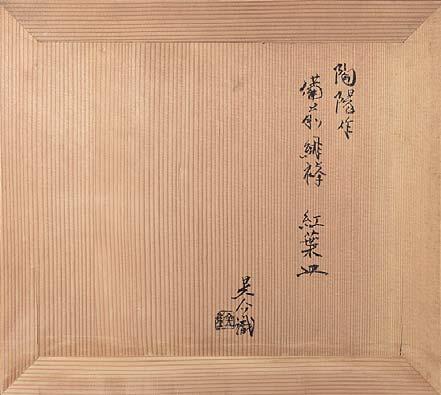 陶陽作
備前緋襷 紅葉皿
是今識